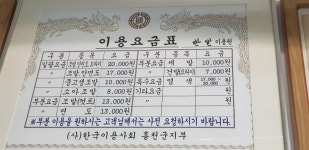 이용요금표 한일 이용원
구분 종목 요금 구분 종목 요금
일괄요금 20,000원 부분요금 세발 10,000원
〃 조발 안면도 17,000원 〃 7,000원
〃 중고생조발 10,000원 특수요금 염색
〃 소아조발 8,000원 기타요금 원
부분요금 조발(컷트) 13,000원 원
〃 면도 13,000원
※부분 이용을 원하시는 고객님께서는 사전 요청하시기 바랍니다.
(사)한국이용사회 홍천군지부